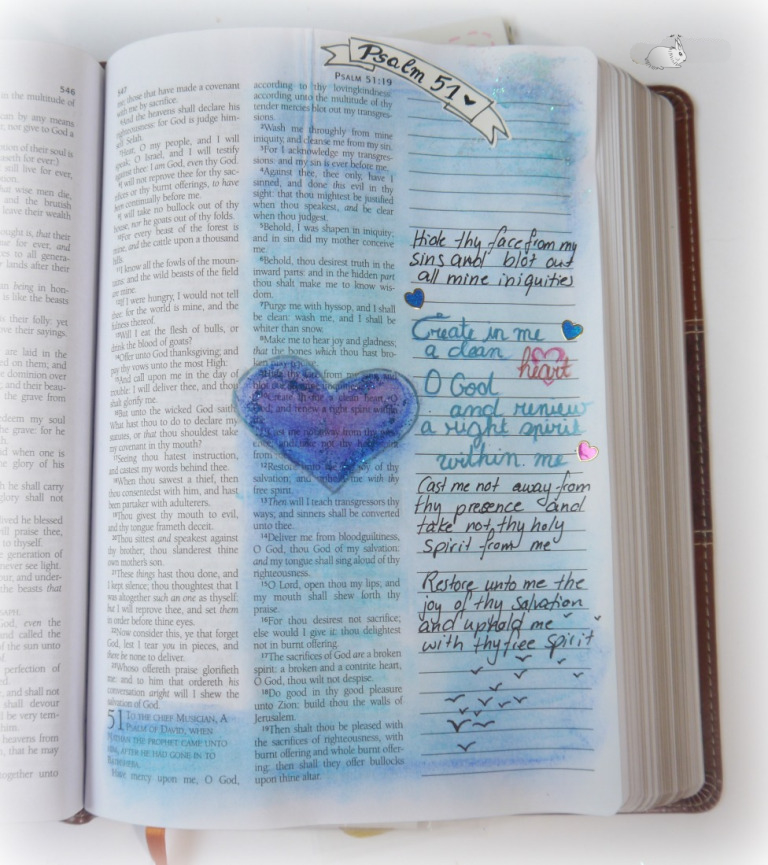 546
in the multitude of
can by any means
nor give to God a
ption of their soul is
aseth for ever:)
still live for ever,
that wise men die,
and the brutish
leave their wealth
ought is, that their
ue for ever, and
es to all genera-
lands after their
an being in hon-
is like the beasts
is their folly: yet
ove their sayings.
are laid in the
ed on them; and
ominion over
and their beau-
the grave from
deem my soul
the grave: for he
h.
id when one is
e glory of his
h he shall carry
glory shall not
ived he blessed
will praise thee,
to thyself.
e generation of
never see light.
our, and under-
the beasts that
God, even the
and called the
of the sun unto
perfection of
and shall not
shall devour
be very tem-
heavens from
that he may
together unto
547
those that have made a covenant
with me by sacrifice.
And the heavens shall declare his
righteousness: for God is judge him-
self. Selah.
Hear, O my people, and I will
speak; O Israel, and I will testify
against thee: I am God, even thy God.
I will not reprove thee for thy sac-
rifices or thy burnt offerings, to have
been continually before me.
I will take no bullock out of thy
house, nor he goats out of thy folds.
For every beast of the forest is
mine, and the cattle upon a thousand
hills.
I know all the fowls of the moun-
tains: and the wild beasts of the field
are mine.
If I were hungry, I would not tell
thee: for the world is mine, and the
fulness thereof.
Will I eat the flesh of bulls, or
drink the blood of goats?
Offer unto God thanksgiving; and
pay thy vows unto the most High:
And call upon me in the day of
trouble: I will deliver thee, and thou
shalt glorify me.
But unto the wicked God saith,
What hast thou to do to declare my
statutes, or that thou shouldest take
my covenant in thy mouth?
Seeing thou hatest instruction,
and castest my words behind thee.
When thou sawest a thief, then
thou consentedst with him, and hast
been partaker with adulterers.
Thou givest thy mouth to evil,
and thy tongue frameth deceit.
Thou sittest and speakest against
thy brother; thou slanderest thine
own mother's son.
These things hast thou done, and
I kept silence; thou thoughtest that I
was altogether such an one as thyself:
but I will reprove thee, and set them
in order before thine eyes.
Now consider this, ye that forget
God, lest I tear you in pieces, and
there be none to deliver.
Whoso offereth praise glorifieth
me: and to him that ordereth his
conversation aright will I shew the
salvation of God.
51 TO THE CHIEF MUSICIAN, A
PSALM OF DAVID, WHEN
NATHAN THE PROPHET CAME UNTO
HIM, AFTER HE HAD GONE IN TO
BATHSHEBA.
Have mercy upon me, O God,
PSALM 51:19
according to thy lovingkindness:
according unto the multitude of thy
tender mercies blot out my transgres-
sions.
2Wash me throughly from mine
iniquity, and cleanse me from my sin.
3For I acknowledge my transgres-
sions: and my sin is ever before me.
4Against thee, thee only, have I
sinned, and done this evil in thy
sight: that thou mightest be justified
when thou speakest, and be clear
when thou judgest.
5Behold, I was shapen in iniquity;
and in sin did my mother conceive
me.
6Behold, thou desirest truth in the
inward parts: and in the hidden part
thou shalt make me to know wis-
dom.
7Purge me with hyssop, and I shall
be clean: wash me, and I shall be
whiter than snow.
8Make me to hear joy and gladness;
that the bones which thou hast bro-
ken may rejoice.
Hide thy face from my sins, and
blot out all mine iniquities.
Create in me a clean heart, O
God; and renew a right spirit within
me.
Cast me not away from thy pres-
ence; and take not thy holy spirit
from me.
12Restore unto me the joy of thy
salvation; and uphold me with thy
free spirit.
13Then will I teach transgressors thy
ways; and sinners shall be converted
unto thee.
14Deliver me from bloodguiltiness,
O God, thou God of my salvation:
and my tongue shall sing aloud of thy
righteousness.
15O Lord, open thou my lips; and
my mouth shall shew forth thy
praise.
16For thou desirest not sacrifice;
else would I give it: thou delightest
not in burnt offering.
17The sacrifices of God are a broken
spirit: a broken and a contrite heart,
O God, thou wilt not despise.
18Do good in thy good pleasure
unto Zion: build thou the walls of
Jerusalem.
19Then shalt thou be pleased with
the sacrifices of righteousness, with
burnt offering and whole burnt offer-
ing: then shall they offer bullocks
upon thine altar.
Psalm 51
Hide thy face from my
sins and blot out
all mine iniquities
Create in me
a clean
heart
O God
and reniew
a right spirit
within me
Cast me not away from
thy presence and
take not thy holy
Spirit from me
Restore unto me the
joy of thy Salvation
and uphold me
with thy free Spirit